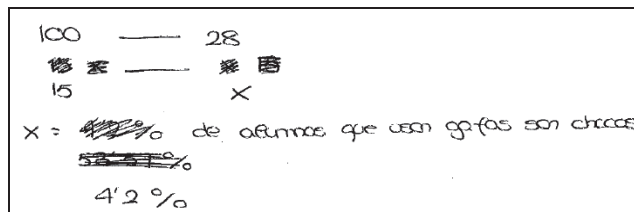 100 —— 28
——
15 X
X = % de alumnos que usan gafas son chicos
4'2 %